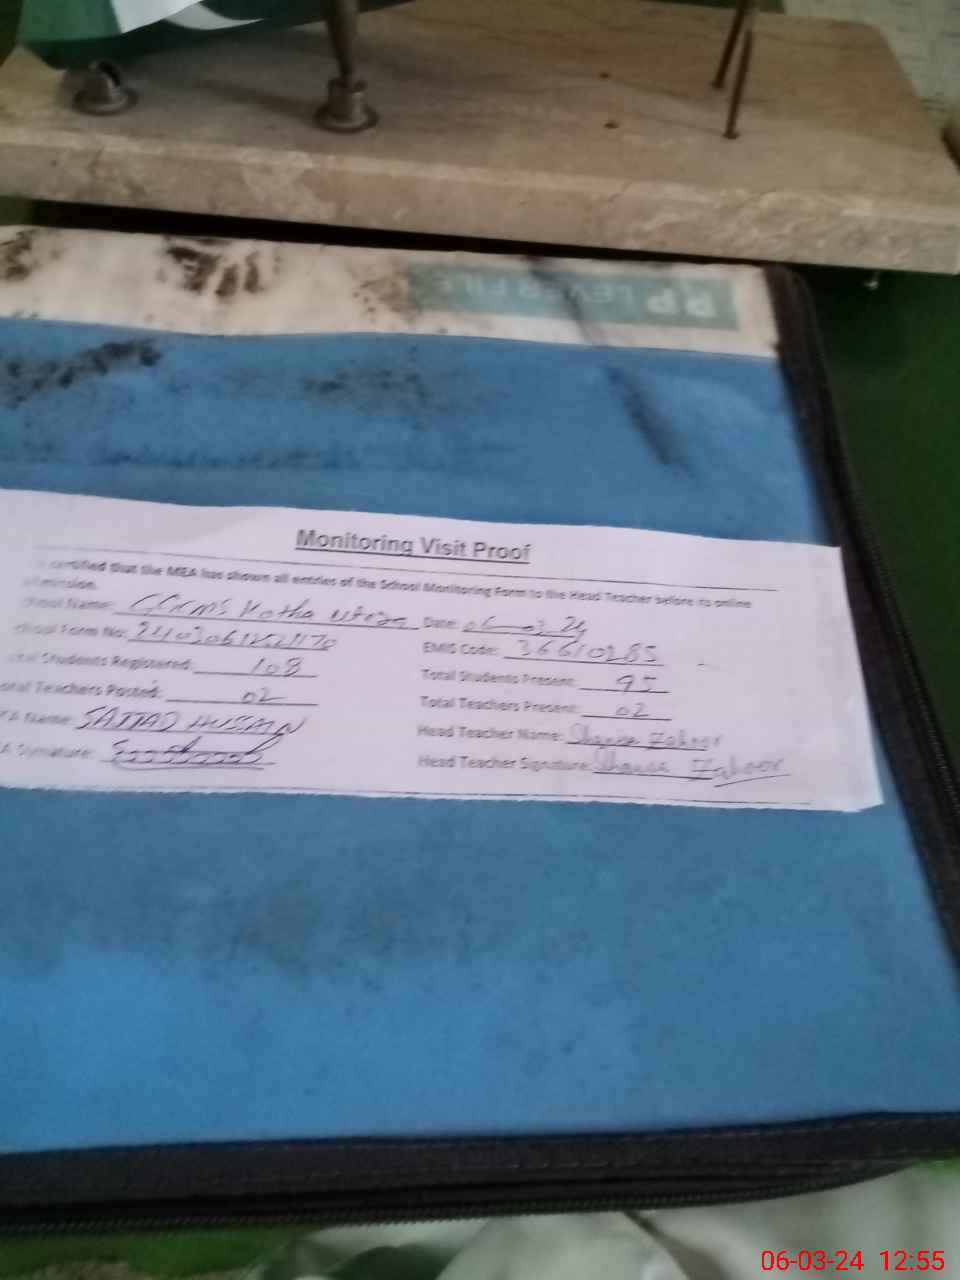 PP LEVER FILE
Monitoring Visit Proof
certified that the MEA has shown all entries of the School Monitoring Form to the Head Teacher before its online
School Name: Kotha Date: 06-03-24
School Form No: EMIS Code: 36610285
Total Students Registered: 108 Total Students Present: 95
Total Teachers Posted: 02 Total Teachers Present: 02
MEA Name: SAJJAD HUSAIN Head Teacher Name: Zahoor
MEA Signature: Head Teacher Signature: Zahoor
06-03-24 12:55